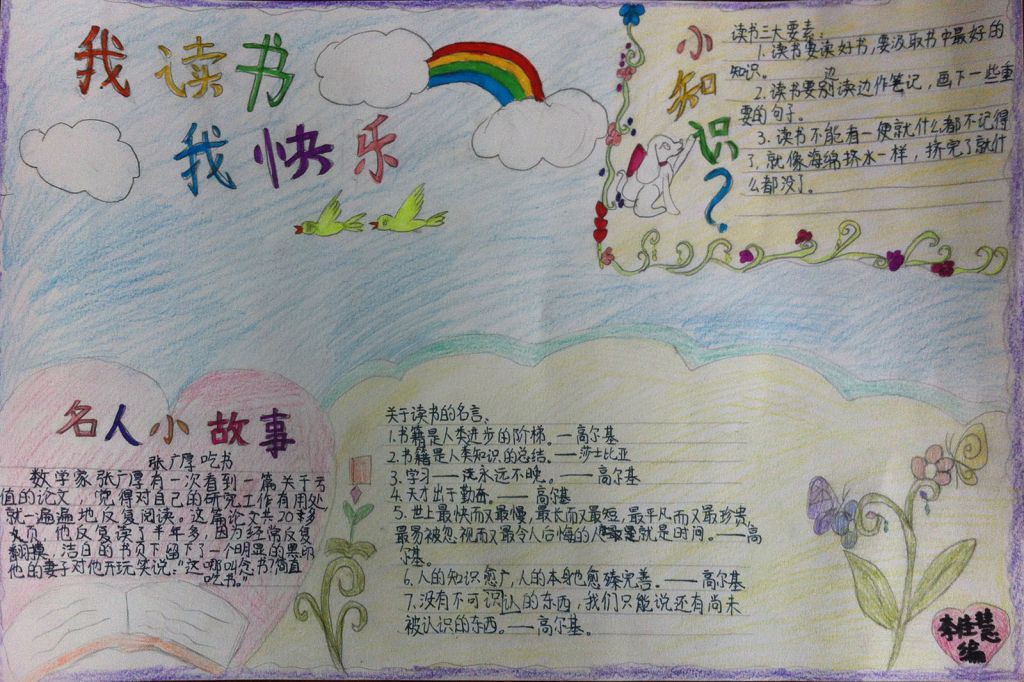 我读书
我快乐
小知识？
读书三大要素：
1.读书要读好书，要汲取书中最好的
知识。
2.读书要边读边作笔记，画下一些重
要的句子。
3.读书不能看一便就什么都不记得
了，就像海绵挤水一样，挤完了就什
么都没了。
名人小故事
张广厚吃书
数学家张广厚有一次看到一篇关于亏
值的论文，觉得对自己的研究工作有用处，
就一遍遍地反复阅读。这篇论文共20多
页，他反复读了半年多，因为经常反复
翻摸，洁白的书页下留下了一个明显的黑印
他的妻子对他开玩笑说："这哪叫念书？简直
吃书。"
关于读书的名言、
1.书籍是人类进步的阶梯。—高尔基
2.书籍是人类知识的总结。——莎士比亚
3.学习——永远不晚。——高尔基
4.天才出于勤奋。——高尔基
5.世上最快而又最慢，最长而又最短，最平凡而又最珍贵
最易被忽视而又最令人后悔的就是时间。——高
尔基。
6.人的知识愈广，人的本身也愈臻完善。——高尔基
7.没有不可认识的东西，我们只能说还有尚未
被认识的东西。——高尔基。
李佳慧
编